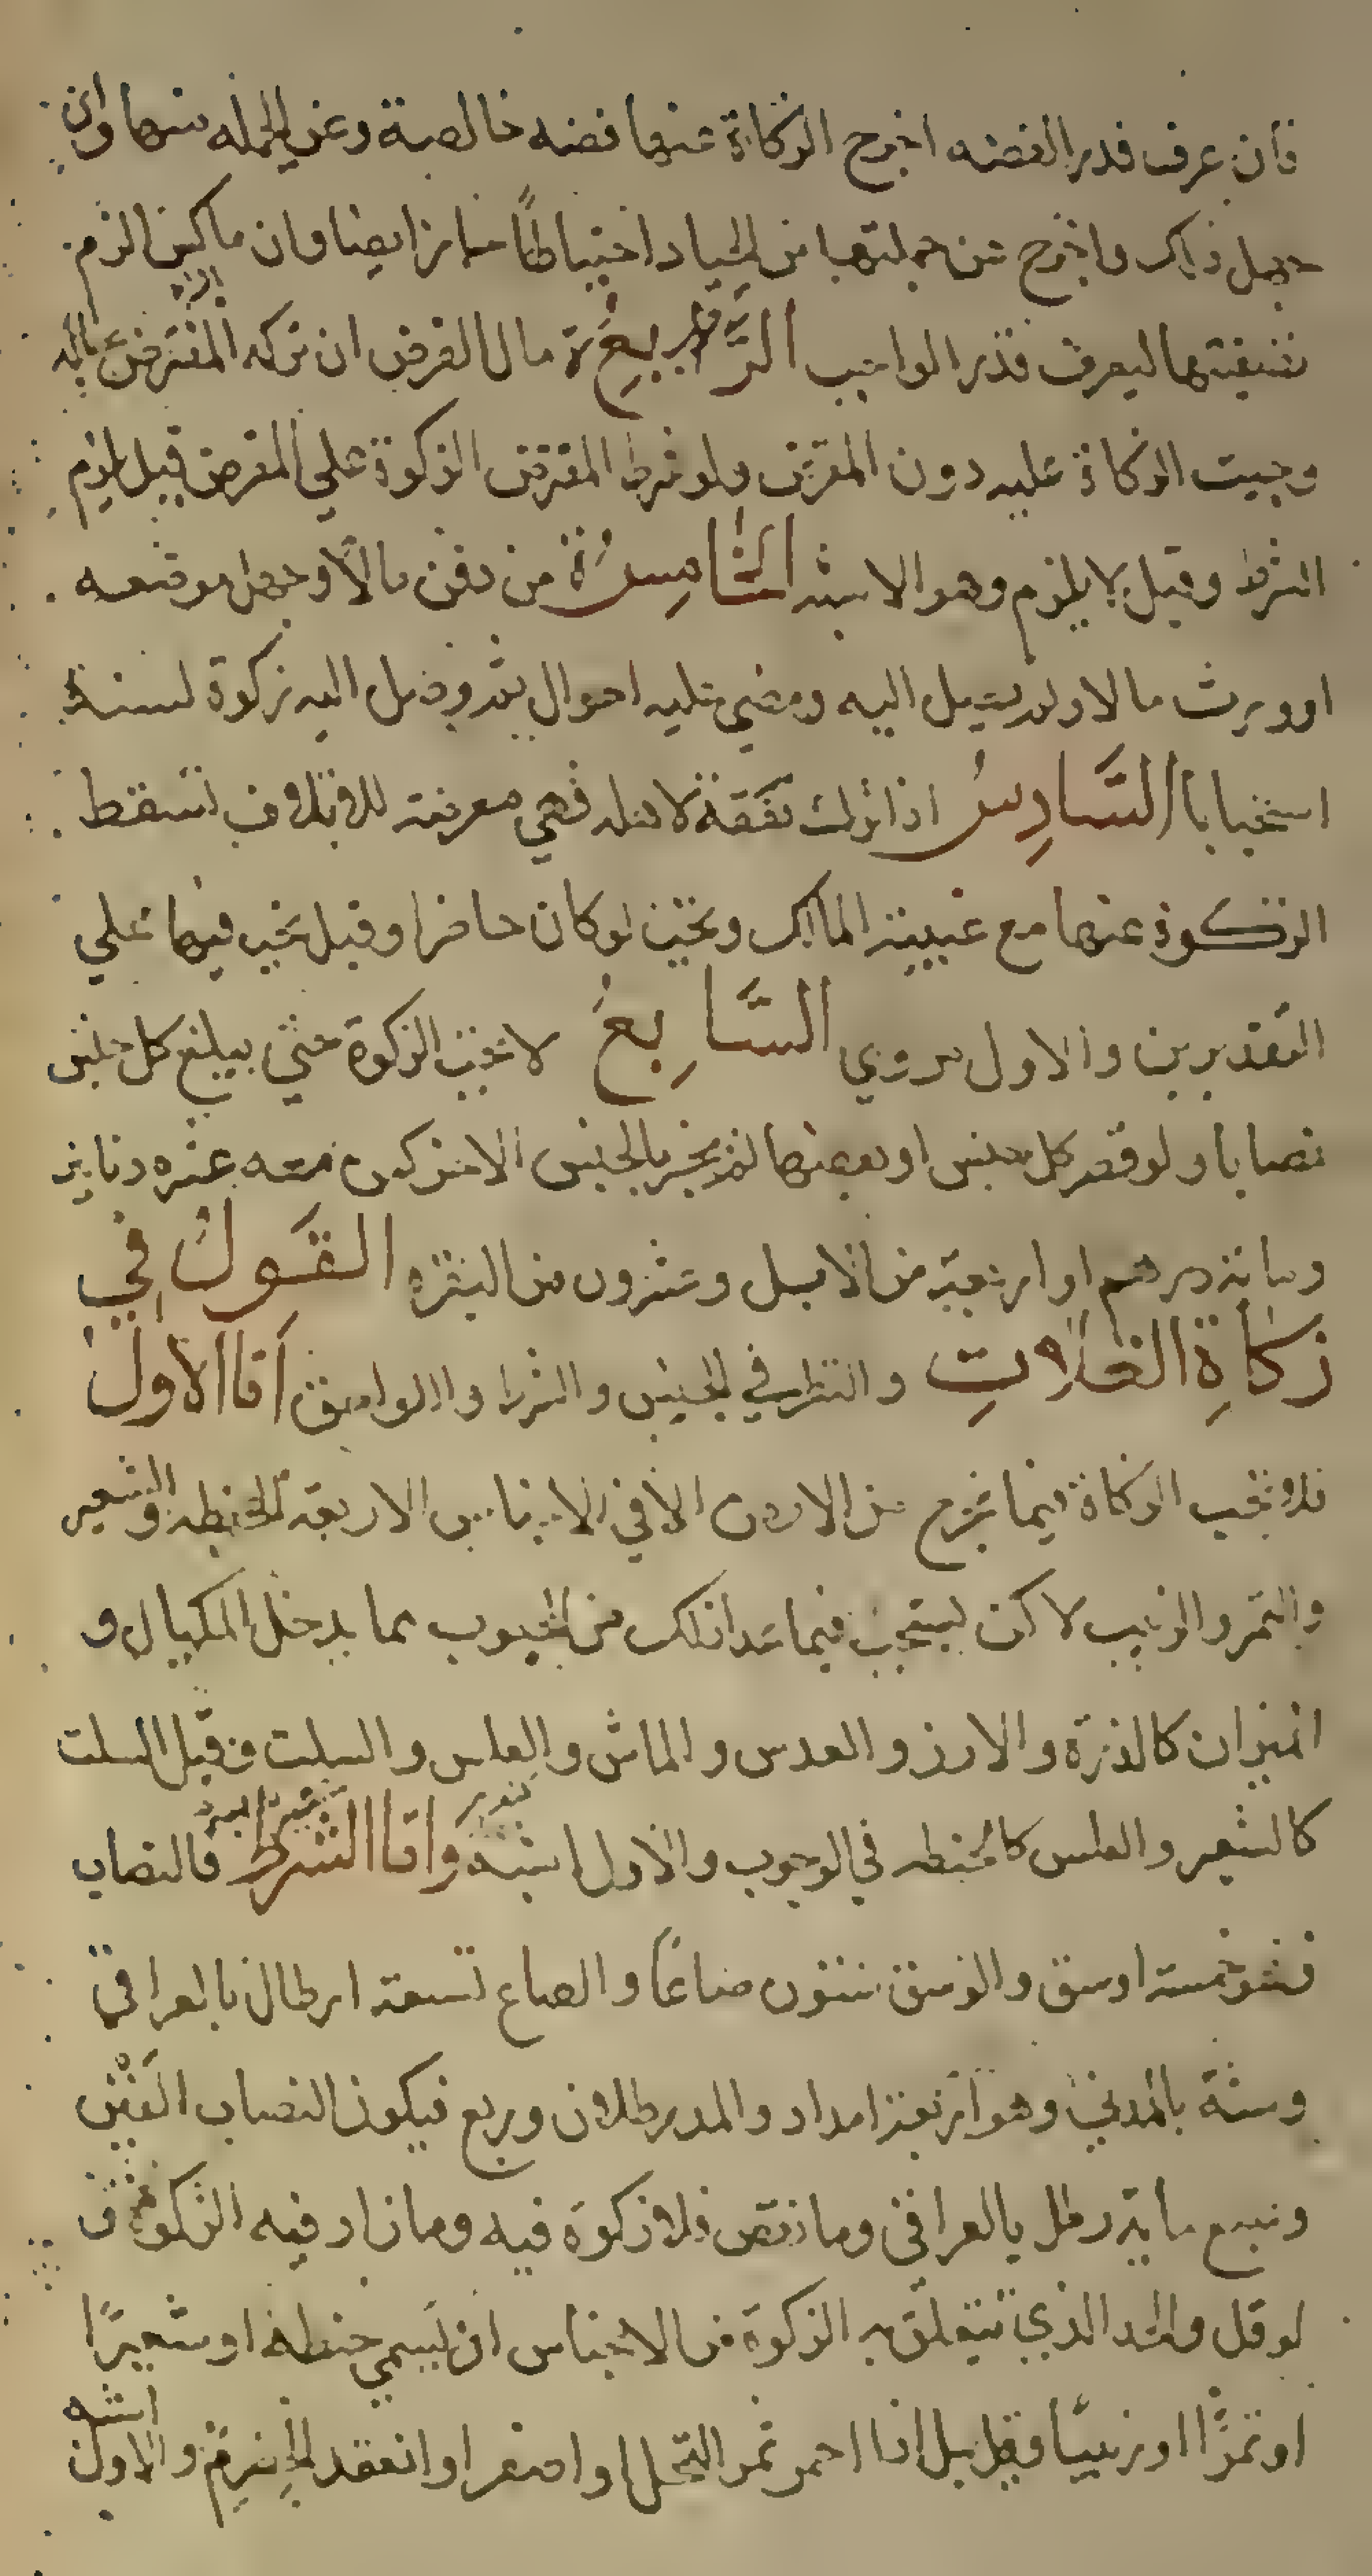 فان عرف قدر الفضه اخرج الزكاة عنها فضه خالصة وعن الجمله منها وان
جهل ذلك واخرج عن جملتها من الجياد احتياطاً جاز ايضا وان ماكس الزم
تصفيتها ليعرف قدر الواجب الرَّابِعَة مال القرض ان تركه المقترض بحاله
وجبت الزكاة عليه دون المقرض ولو شرط المقترض الزكوة علي المقرض قيل يلزم
الشرط وقيل لا يلزم وهو الاشبه الخَامِسُة من دفن مالاً وجهل موضعه
او ورث مالا ولم يصل اليه ومضي عليه احوال ثم وصل اليه زكوة لسنة
استحبابا السَّادِسُ اذا ترك نفقة لاهله فهي معرضه للاتلاف تسقط
الزكوة عنها مع غيبة المالك وتجب لو كان حاضرا وقيل تجب فيها علي
التقديرين والاول مروي السَّابِعَ لا تجب الزكوة حتي يبلغ كل جنس
نصابا ولو قصر كل جنس او بعضها لم يجبر بالجنس الاخر كمن معه عشره دنانير
ومائة درهم او اربعة من الابل وعشرون من البقر القَولُ في
زكَاةِ الغلاتِ والنظر في الجنس والشرط واللواحق أما الأول
فلا تجب الزكاة فيما يخرج من الارض الا في الاجناس الاربعة الحنطه والشعير
والتمر والزبيب لاكن يستحب فيما عدا ذلك من الحبوب مما يدخل المكيال و
الميزان كالذرة والارز والعدس والماش والعلس والسلت وقيل السلت
كالشعير والعلس كالحنطه في الوجوب والاول اشبه واما الشرط فالنصاب
فهو خمسة اوسق والوسق ستون صاعًا والصاع تسعة ارطال بالعراقي
وستة بالمدني وهو اربعة امداد والمد رطلان وربع فيكون النصاب الفين
وسبع ماية رطل بالعراقي وما نقص فلا زكوة فيه وما زاد فيه الزكوة و
لو قل والحد الذي تتعلق به الزكوة من الاجناس ان يسمي حنطه او شعيرًا
او تمرًا او زبيبًا وقيل بل اذا احمر ثمر النخل او اصفر او انعقد الحِصْرِم والاول اشبه